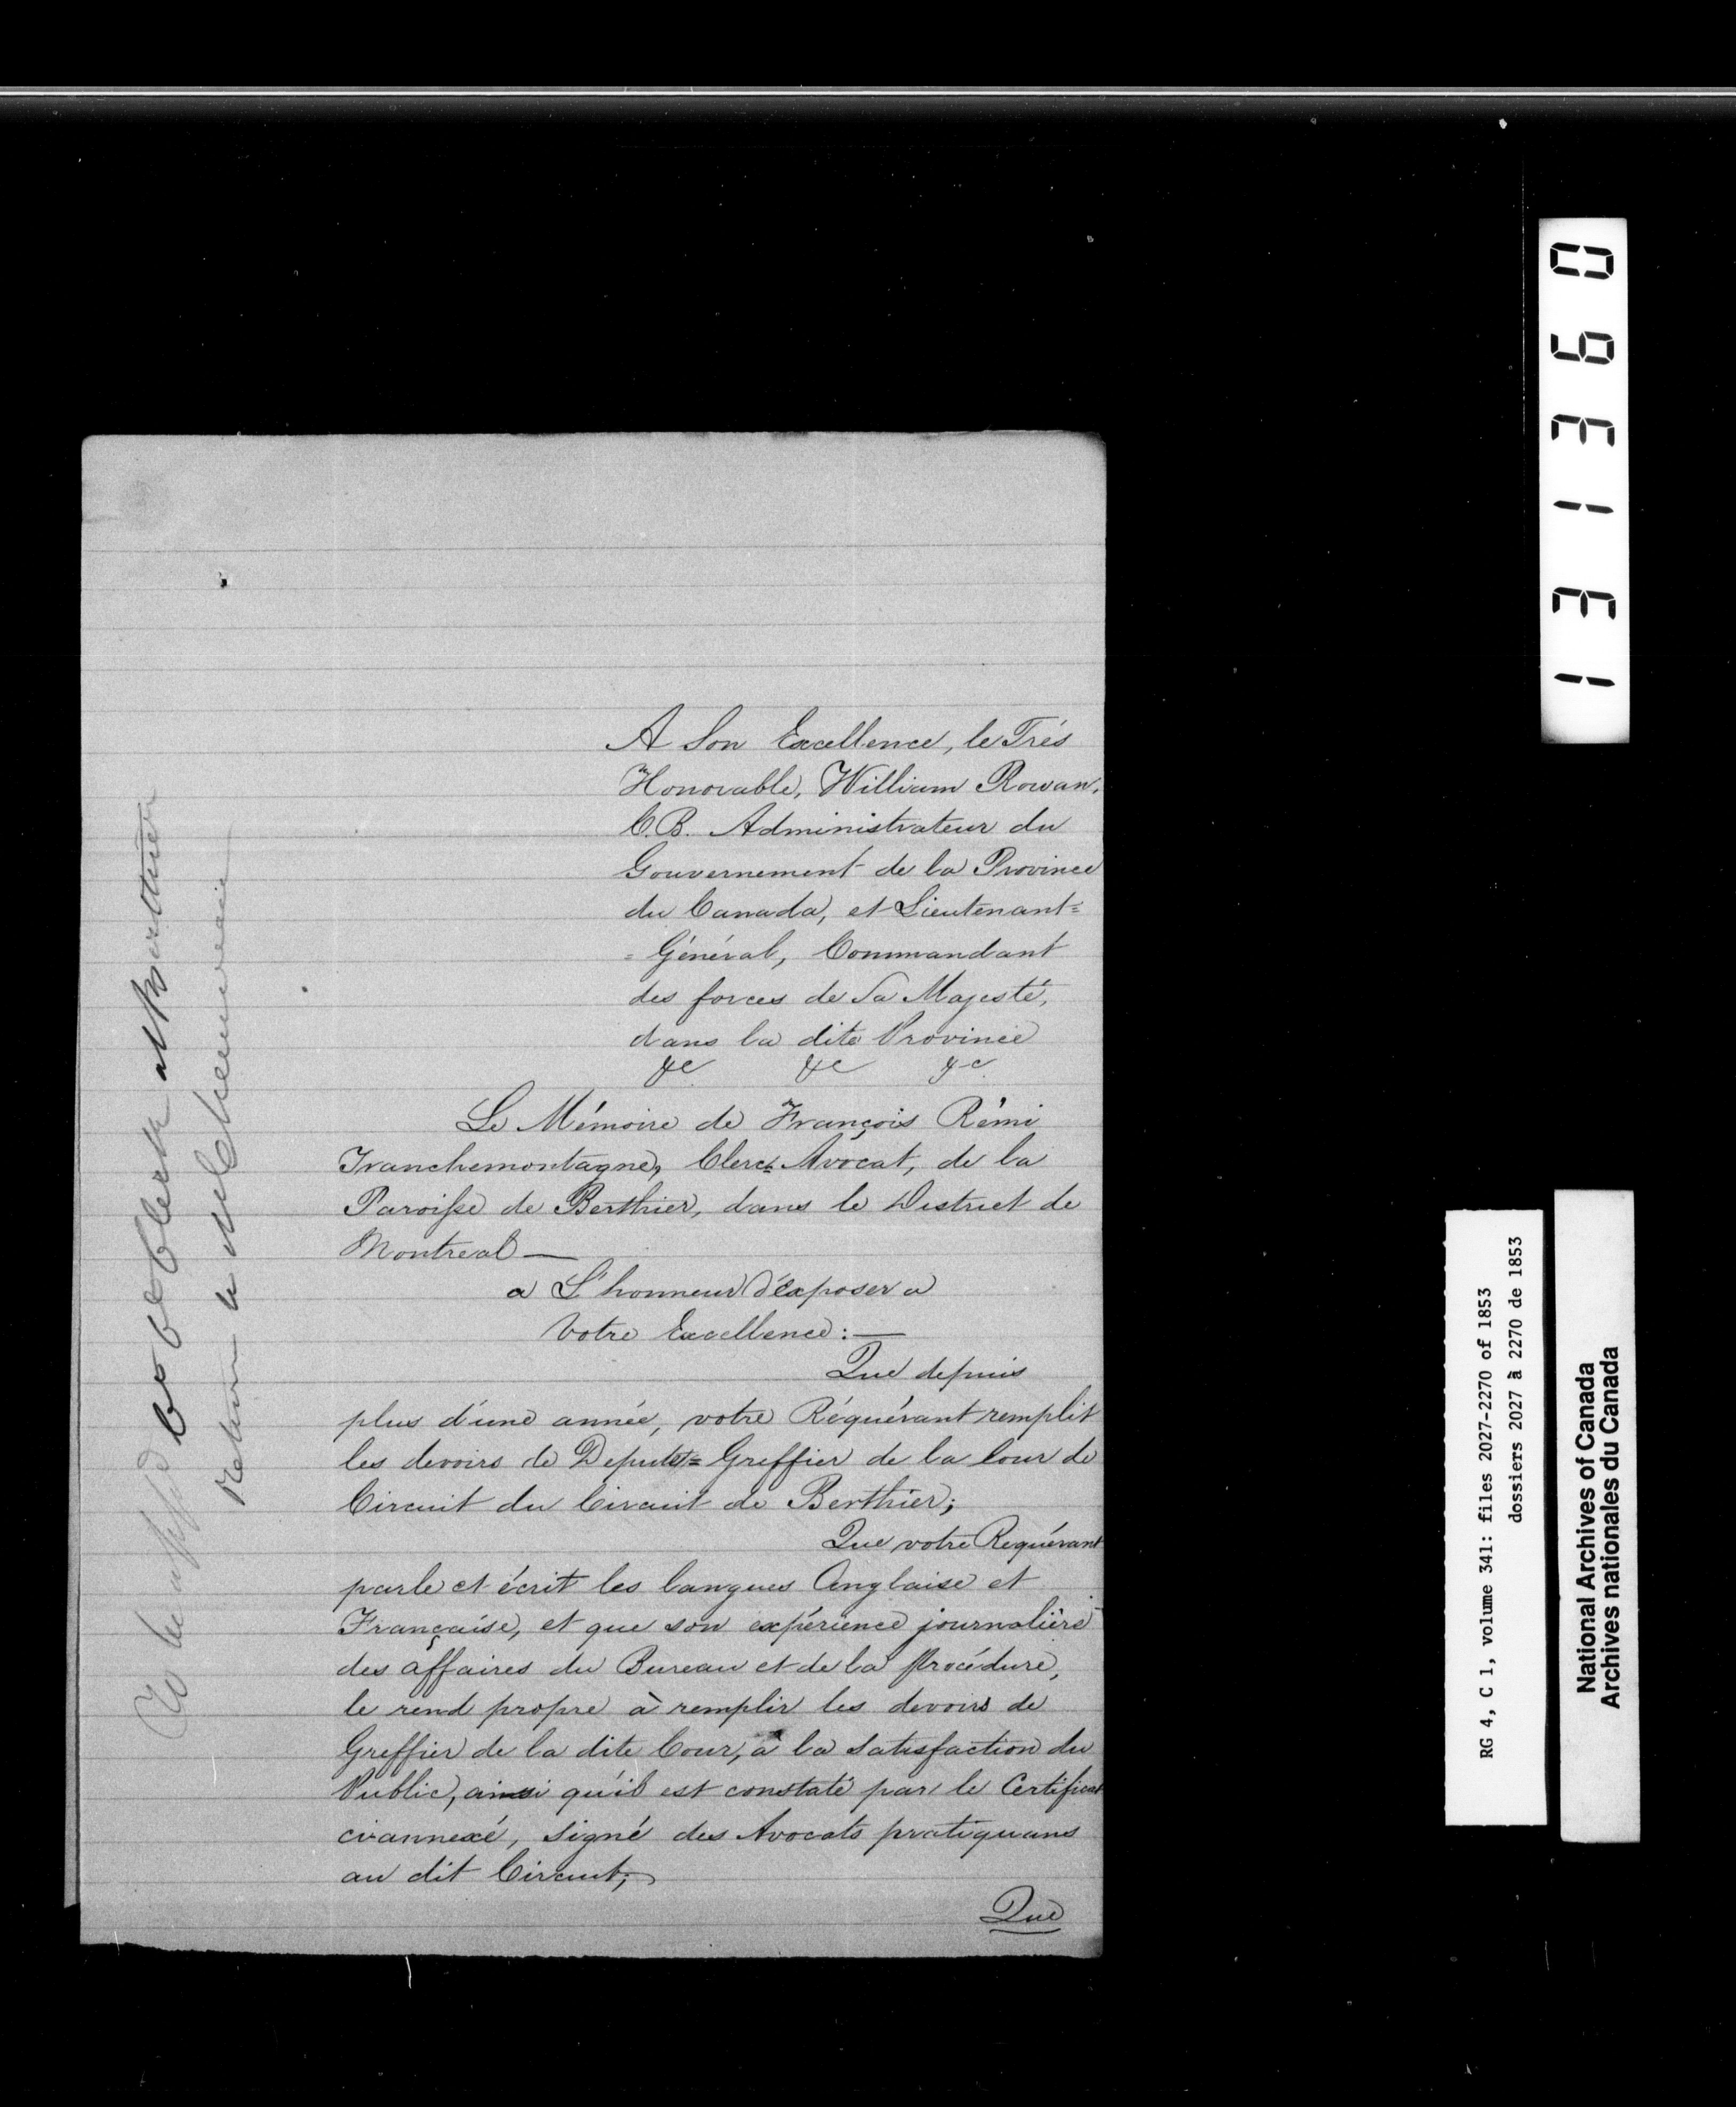 A Son Excellence, le Trés
Honorable, William Rowan,
C.B. Administrateur du
Gouvernement de la Province
du Canada, et Lieutenant=
=Général, Commandant
des forces de Sa Majesté,
dans la dite Province
&c &c &c.
Le Mémoire de François Rémi
Tranchemontagne, Clerc=Avocat, de la
Paroisse de Berthier, dans le District de
Montreal—
a L'honneur d'éxposer a
Votre Excellence:—
Que depuis
plus d'une année, votre Réquérant remplit
les devoirs de Députe=Greffier de la Cour de
Circuit du Circuit de Berthier;
Que votre Requérant
parle et écrit les langues Anglaise et
Française, et que son expérience journalière
des affaires du Bureau et de la procédure,
le rend propre à remplir les devoirs de
Greffier de la dite Cour, à la satisfaction du
Public, ainsi qu'il est constaté par le Certificat
ci-annexé, signé des Avocats pratiquans
au dit Circuit;
Que
To be appd Co Ct Clerk at Berthier
Return to
131360
RG 4, C 1, volume 341: files 2027-2270 of 1853
dossiers 2027 à 2270 de 1853
National Archives of Canada
Archives nationales du Canada